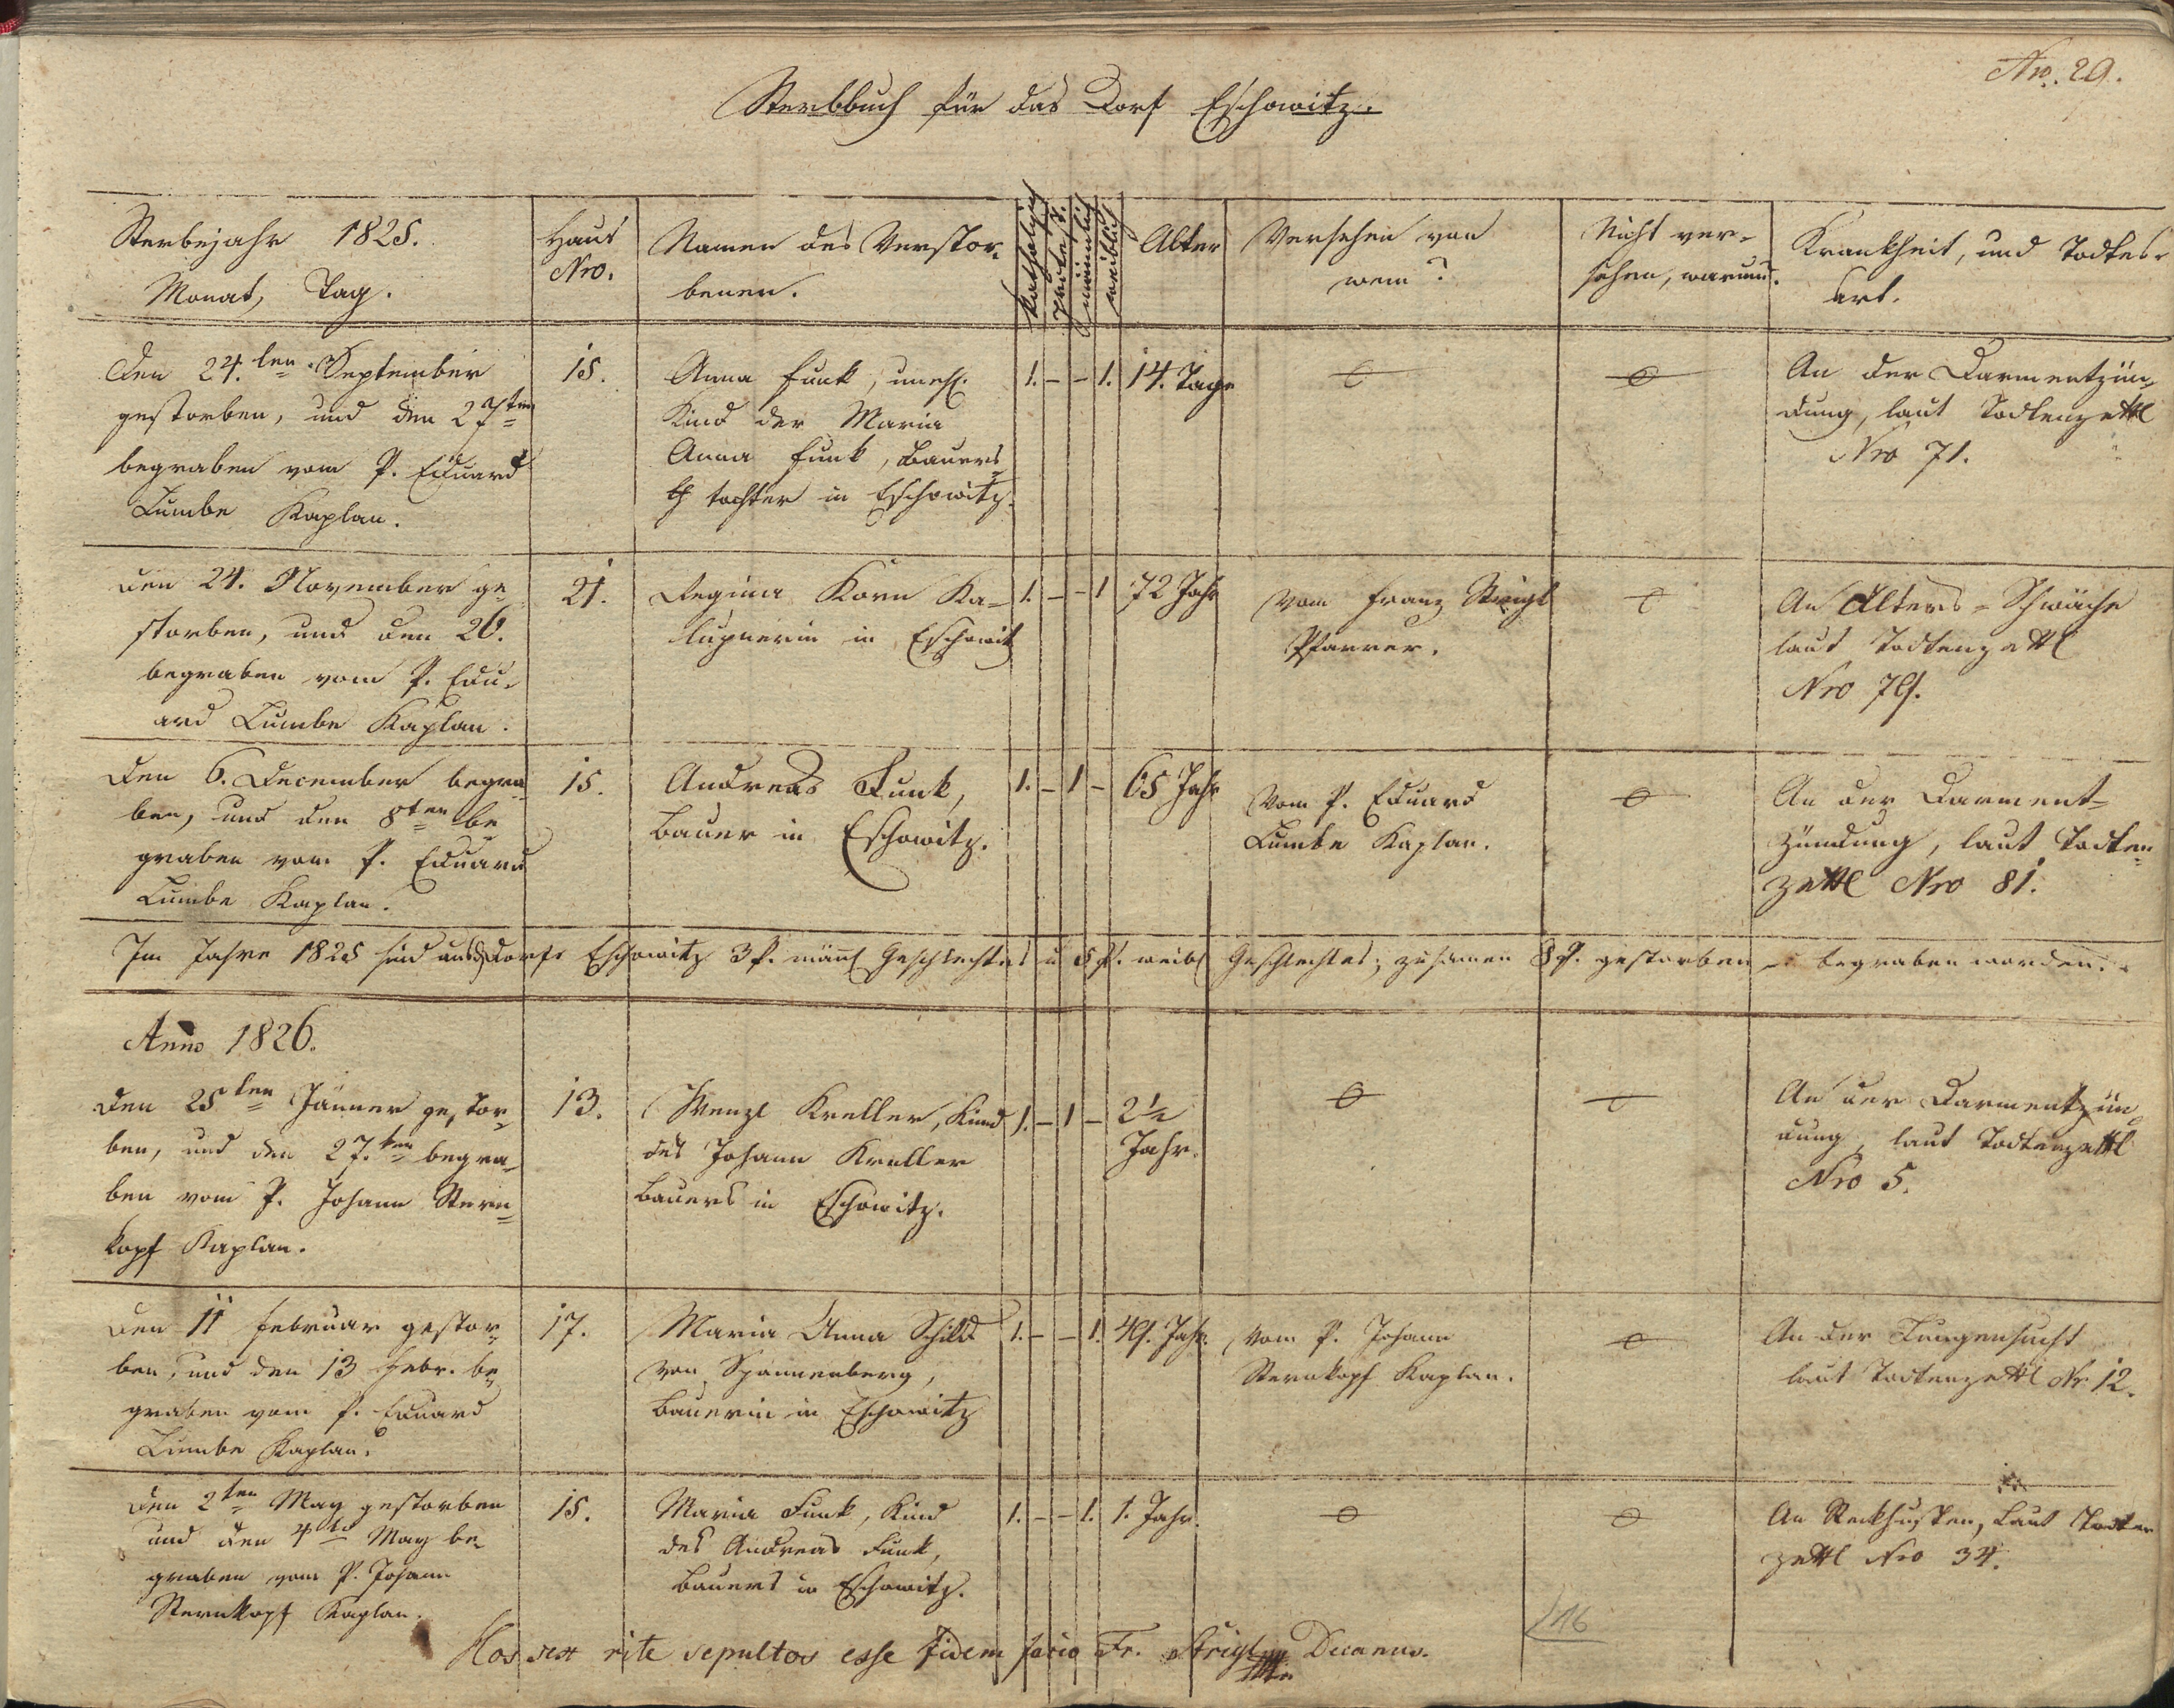 Nro. 29.
Sterbbuch für das Dorf Eschowitz.
Sterbejahr 1825.
Monat, Tag.
Haus
Nro.
Namen des Verstor-
benen.
Katholisch
Protest.
männlich
weiblich
Alter
Versehen von
wem?
Nicht ver-
sehen, warum.
Krankheit, und Todtes-
art.
Den 24.ten September
gestorben, und den 27ten
begraben vom P. Eduard
Lumbe Kaplan.
15.
Anna Funk, unehl.
Kind der Maria
Anna Funk, Bauers
tochter in Eschowitz.
1. - - 1.
14. Tage
An der Darmentzün-
dung, laut Todtenzettl
Nro 71.
den 24. November ge
storben, und den 26.
begraben vom P. Edu-
ard Lumbe Kaplan.
21.
Regina Korn Ka-
lupnerin in Eschowitz
1. - - 1
72 Jahr
Vom Franz Strigl
Pfarrer.
An Alters-Schwäche
laut Todtenzettl
Nro 79.
den 6. December begra-
ben, und den 8ten be
graben vom P. Eduard
Lumbe Kaplan.
15.
Andreas Funk,
Bauer in Eschowitz.
1. - 1 -
65 Jahr
Vom P. Eduard
Lumbe Kaplan.
An der Darment-
zündung, laut Todten-
zettl Nro 81.
Im Jahre 1825 sind aus Dorfe Eschowitz 3 P. männl Geschlechtes u 5 P. weibl Geschlechtes, zusamen 8 P. gestorben u begraben worden.
Anno 1826.
den 25ten Jänner gestor-
ben, und den 27.ten begra-
ben vom P. Johann Stern-
kopf Kaplan.
13.
Wenzl Kreller, Kind
des Johann Kreller
Bauers in Eschowitz.
1. - 1 -
2 1/2
Jahr.
An der Darmentzün
dung, laut Todtenzettl
Nro 5.
den 11 Februar gestor-
ben, und den 13 Febr. be-
graben vom P. Eduard
Lumbe Kaplan.
17.
Maria Anna Schild
von Spannenberg,
Bäuerin in Eschowitz
1. - - 1.
49. Jahr.
Vom P. Johann
Sternkopf Kaplan.
An der Lungensucht
laut Todtenzettl Nr. 12.
den 2ten May gestorben
und den 4ten May be-
graben vom P. Johann
Sternkopf Kaplan.
15.
Maria Funk, Kind
des Andreas Funk,
Bauers in Eschowitz.
1. - - 1.
1. Jahr.
An Steckhusten, laut Todten
zettl Nro 34.
Hos sex rite sepultos esse fidem facio Fr. Strigl Decanus.
146